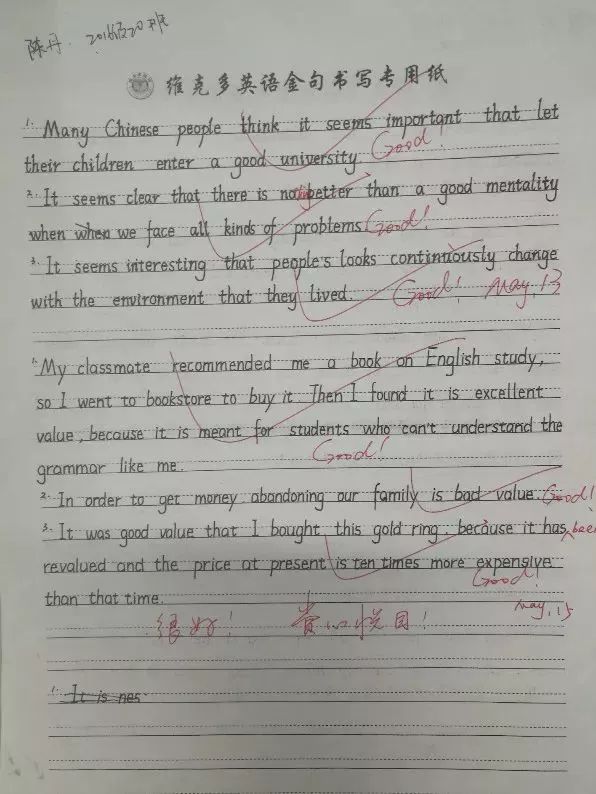 陈丹 2016级20班
维克多英语金句书写专用纸
1. Many Chinese people think it seems important that let
their children enter a good university. Good!
2. It seems clear that there is nothing better than a good mentality
when when we face all kinds of problems. Good!
3. It seems interesting that people's looks continuously change
with the environment that they lived. Good! May, 13
1. My classmate recommended me a book on English study,
so I went to bookstore to buy it. Then I found it is excellent
value, because it is meant for students who can't understand the
grammar like me. Good!
2. In order to get money abandoning our family is bad value. Good!
3. It was good value that I bought this gold ring, because it has been
revalued and the price at present is ten times more expensive
than that time. Good!
May, 15
很好! 赏心悦目!
1. It is nes